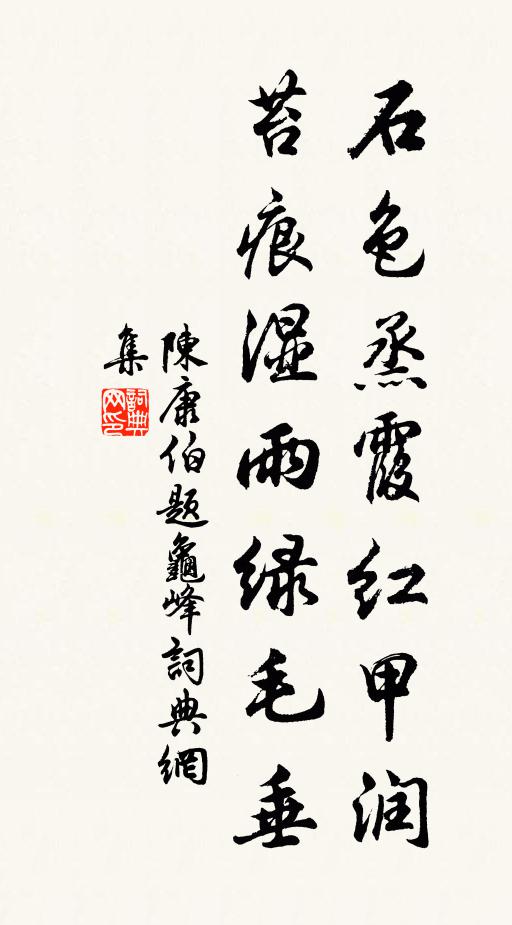 石色蒸霞红甲润
苔痕湿雨绿毛垂
陳康伯题龜峰詞典網
集
詞典
网印